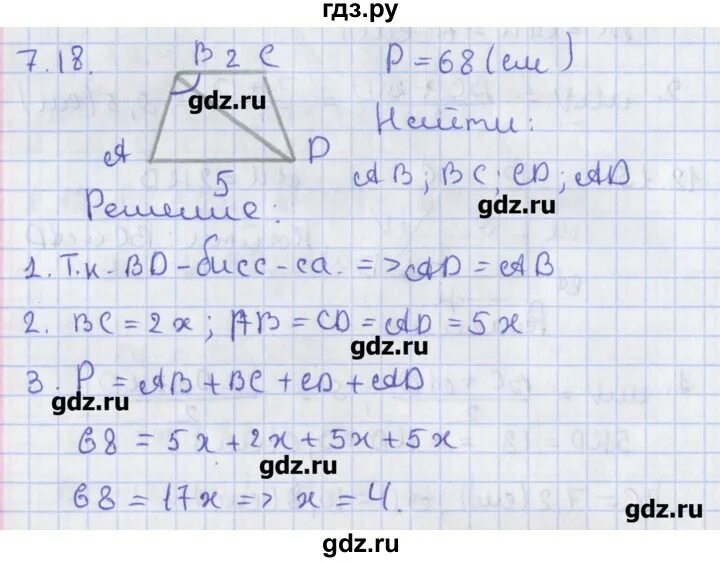 гдз.ру
7.18.
B 2 C
P = 68 (см)
gdz.ru
Найти:
A
D
5
AB; BC; CD; AD
gdz.ru
Решение:
1. Т.к - BD - бисс - са. => AD = AB
2. BC = 2x; AB = CD = AD = 5x
gdz.ru
3. P = AB + BC + CD + AD
gdz.ru
68 = 5x + 2x + 5x + 5x
gdz.ru
68 = 17x => x = 4.
gdz.ru
gdz.ru